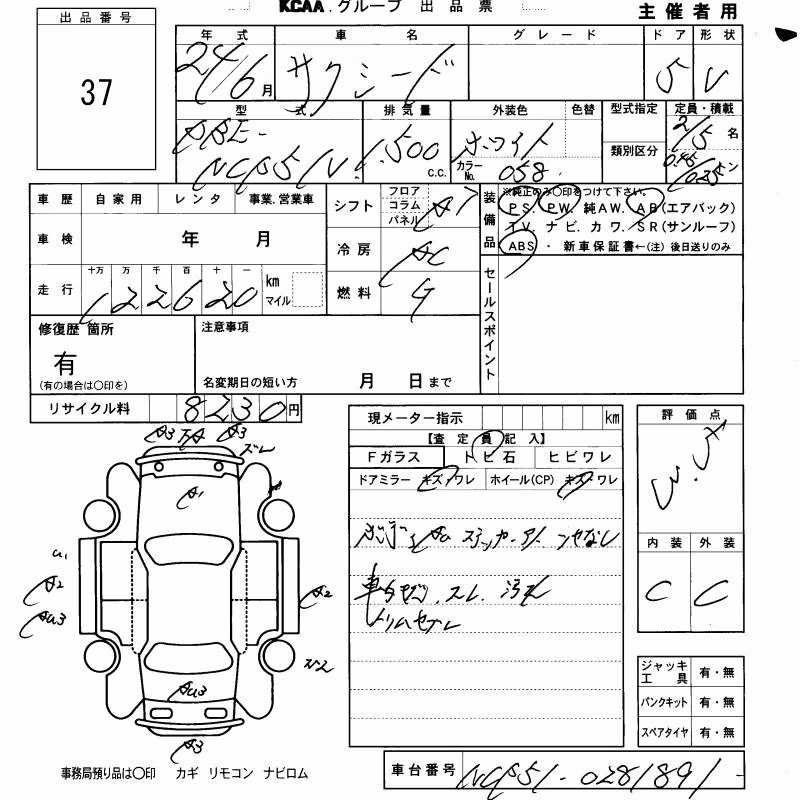 KCAA.グループ 出品票
主催者用
出品番号
37
年式 車名 グレード ドア 形状
24/6月 サクシード 5 V
型式 排気量 外装色 色替 型式指定 定員・積載
DBE-
NCP51V 1.500 c.c. ホワイト
カラーNo. 058
類別区分
2/5名
車歴 自家用 レンタ 事業.営業車
車検 年 月
走行 十万 万 千 百 十 一
122620 km マイル
シフト フロア コラム パネル AT
冷房 AC
燃料 G
装備品
※純正のみ〇印をつけて下さい。
PS. PW. 純AW. AB(エアバック)
TV. ナビ. カワ. SR(サンルーフ)
ABS ・ 新車保証書←(注)後日送りのみ
セールスポイント
修復歴 箇所
有
(有の場合は〇印を)
注意事項
名変期日の短い方 月 日まで
リサイクル料 8230円
現メーター指示 km
【査定員記入】
Fガラス トビ石 ヒビワレ
ドアミラー キズ・ワレ ホイール(CP) キズ・ワレ
評価点
内装 外装
C C
A3 A3
ズレ
A1
U1
A2
AU3
A2
AU3
A3
ジャッキ工具 有・無
パンクキット 有・無
スペアタイヤ 有・無
事務局預り品は〇印 カギ リモコン ナビロム
車台番号 NCP51-0281891-